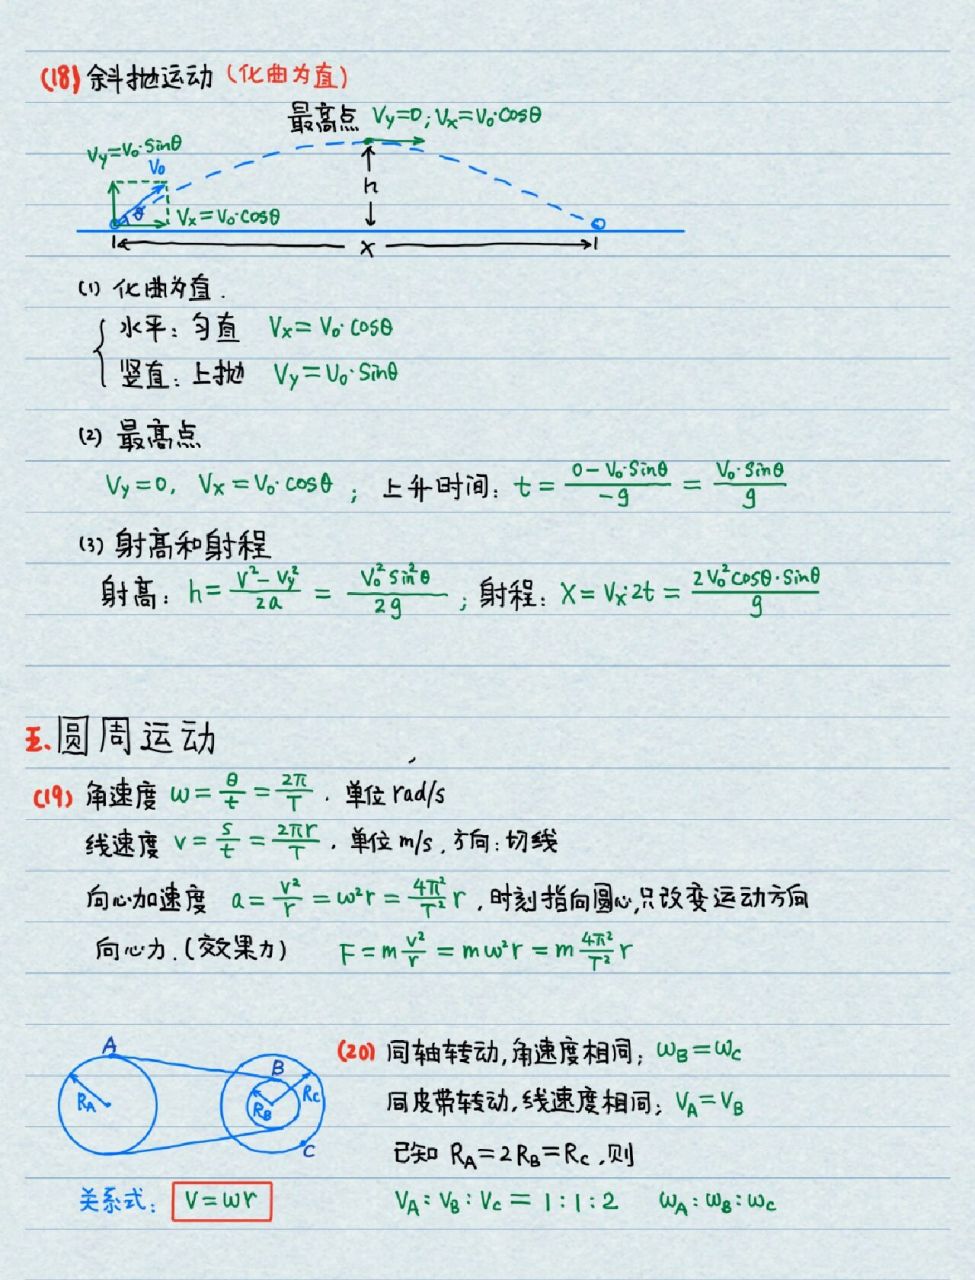 (18) 斜抛运动（化曲为直）
最高点 Vy=0; Vx=V₀·cosθ
Vy=V₀·sinθ
V₀
h
θ
Vx=V₀·cosθ
X
(1) 化曲为直.
水平: 匀直 Vx=V₀·cosθ
竖直: 上抛 Vy=V₀·sinθ
(2) 最高点
Vy=0, Vx=V₀·cosθ; 上升时间: t=(0-V₀·sinθ)/(-g)=(V₀·sinθ)/g
(3) 射高和射程
射高: h=(V²-Vy²)/(2a)=(V₀²sin²θ)/(2g); 射程: X=Vx·2t=(2V₀²cosθ·sinθ)/g
五.圆周运动
(19) 角速度 ω=θ/t=2π/T. 单位rad/s
线速度 v=s/t=2πr/T. 单位m/s, 方向:切线
向心加速度 a=v²/r=ω²r=(4π²/T²)r, 时刻指向圆心,只改变运动方向
向心力.(效果力) F=m(v²/r)=mω²r=m(4π²/T²)r
A
B
RA
RB
RC
C
(20) 同轴转动,角速度相同; ωB=ωC
同皮带转动,线速度相同; VA=VB
已知 RA=2RB=RC,则
关系式: V=ωr
VA:VB:VC=1:1:2 ωA:ωB:ωC